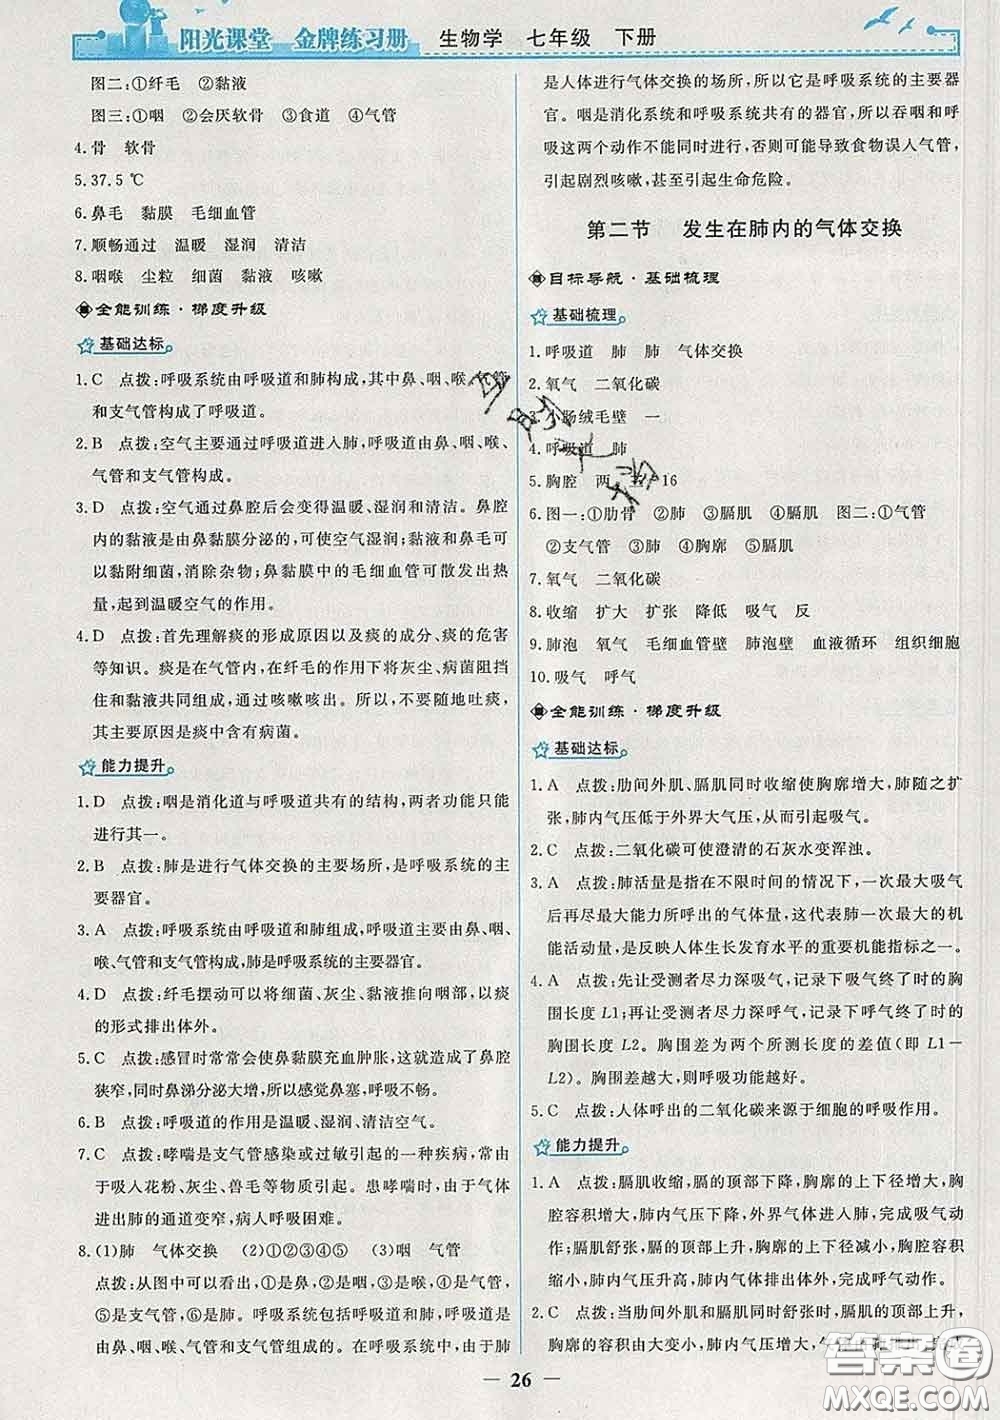 阳光课堂 金牌练习册 生物学 七年级 下册
图二:①纤毛 ②黏液
图三:①咽 ②会厌软骨 ③食道 ④气管
4.骨 软骨
5.37.5 ℃
6.鼻毛 黏膜 毛细血管
7.顺畅通过 温暖 湿润 清洁
8.咽喉 尘粒 细菌 黏液 咳嗽
全能训练·梯度升级
基础达标
1.C 点拨:呼吸系统由呼吸道和肺构成,其中鼻、咽、喉、气管
和支气管构成了呼吸道。
2.B 点拨:空气主要通过呼吸道进入肺,呼吸道由鼻、咽、喉、
气管和支气管构成。
3.D 点拨:空气通过鼻腔后会变得温暖、湿润和清洁。鼻腔
内的黏液是由鼻黏膜分泌的,可使空气湿润;黏液和鼻毛可
以黏附细菌,消除杂物;鼻黏膜中的毛细血管可散发出热
量,起到温暖空气的作用。
4.D 点拨:首先理解痰的形成原因以及痰的成分、痰的危害
等知识。痰是在气管内,在纤毛的作用下将灰尘、病菌阻挡
住和黏液共同组成,通过咳嗽咳出。所以,不要随地吐痰,
其主要原因是痰中含有病菌。
能力提升
1.D 点拨:咽是消化道与呼吸道共有的结构,两者功能只能
进行其一。
2.B 点拨:肺是进行气体交换的主要场所,是呼吸系统的主
要器官。
3.A 点拨:呼吸系统由呼吸道和肺组成,呼吸道由鼻、咽、
喉、气管和支气管组成,肺是呼吸系统的主要器官。
4.D 点拨:纤毛摆动可以将细菌、灰尘、黏液推向咽部,以痰
的形式排出体外。
5.C 点拨:感冒时常常会使鼻黏膜充血肿胀,这就造成了鼻腔
狭窄,同时鼻涕分泌大增,所以感觉鼻塞,呼吸不畅。
6.C 点拨:呼吸道的作用是温暖、湿润、清洁空气。
7.C 点拨:哮喘是支气管感染或过敏引起的一种疾病,常由
于吸入花粉、灰尘、兽毛等物质引起。患哮喘时,由于气体
进出肺的通道变窄,病人呼吸困难。
8.(1)肺 气体交换 (2)①②③④⑤ (3)咽 气管
点拨:从图中可以看出,①是鼻,②是咽,③是喉,④是气管,
⑤是支气管,⑥是肺。呼吸系统包括呼吸道和肺,呼吸道由
鼻、咽、喉、气管和支气管组成的。在呼吸系统中,由于肺
是人体进行气体交换的场所,所以它是呼吸系统的主要器
官。咽是消化系统和呼吸系统共有的器官,所以吞咽和呼
吸这两个动作不能同时进行,否则可能导致食物误人气管,
引起剧烈咳嗽,甚至引起生命危险。
第二节 发生在肺内的气体交换
目标导航·基础梳理
基础梳理
1.呼吸道 肺 肺 气体交换
2.氧气 二氧化碳
3.小肠绒毛壁 一
4.呼吸道 肺
5.胸腔 两 16
6.图一:①肋骨 ②肺 ③膈肌 ④膈肌 图二:①气管
②支气管 ③肺 ④胸廓 ⑤膈肌
7.氧气 二氧化碳
8.收缩 扩大 扩张 降低 吸气 反
9.肺泡 氧气 毛细血管壁 肺泡壁 血液循环 组织细胞
10.吸气 呼气
全能训练·梯度升级
基础达标
1.A 点拨:肋间外肌、膈肌同时收缩使胸廓增大,肺随之扩
张,肺内气压低于外界大气压,从而引起吸气。
2.C 点拨:二氧化碳可使澄清的石灰水变浑浊。
3.A 点拨:肺活量是在不限时间的情况下,一次最大吸气
后再尽最大能力所呼出的气体量,这代表肺一次最大的机
能活动量,是反映人体生长发育水平的重要机能指标之一。
4.A 点拨:先让受测者尽力深吸气,记录下吸气终了时的胸
围长度 L1;再让受测者尽力深呼气,记录下呼气终了时的
胸围长度 L2。胸围差为两个所测长度的差值(即 L1-
L2)。胸围差越大,则呼吸功能越好。
5.C 点拨:人体呼出的二氧化碳来源于细胞的呼吸作用。
能力提升
1.A 点拨:膈肌收缩,膈的顶部下降,胸廓的上下径增大,胸
腔容积增大,肺扩张,外界气体进入肺,完成吸气动作;
膈肌舒张,膈的顶部上升,胸廓的上下径缩小,胸腔容积缩
小,肺回缩,肺内气体排出体外,完成呼气动作。
2.C 点拨:当肋间外肌和膈肌同时舒张时,膈肌的顶部上升,
胸廓的容积由大变小,肺内气压增大,
26
答案圈
MXQE.COM